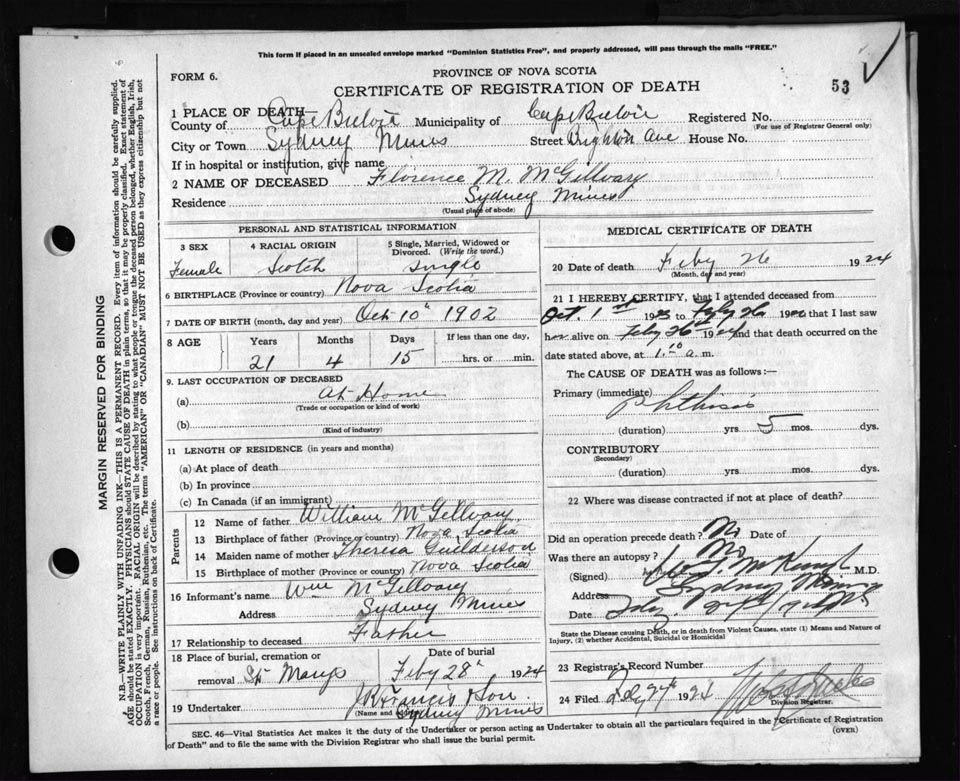 This form if placed in an unsealed envelope marked "Dominion Statistics Free", and properly addressed, will pass through the mails "FREE."
FORM 6.
PROVINCE OF NOVA SCOTIA
CERTIFICATE OF REGISTRATION OF DEATH
53
1 PLACE OF DEATH
County of Cape Breton Municipality of Cape Breton Registered No.
(For use of Registrar General only)
City or Town Sydney Mines Street Brighton Ave House No.
If in hospital or institution, give name
2 NAME OF DECEASED Florence M. McGillvary
Residence Sydney Mines
(Usual place of abode)
PERSONAL AND STATISTICAL INFORMATION
3 SEX Female
4 RACIAL ORIGIN Scotch
5 Single, Married, Widowed or Divorced. (Write the word.) Single
6 BIRTHPLACE (Province or country) Nova Scotia
7 DATE OF BIRTH (month, day and year) Oct 10th 1902
8 AGE Years Months Days If less than one day,
21 4 15 hrs. or min.
9. LAST OCCUPATION OF DECEASED
(a) At Home
(Trade or occupation or kind of work)
(b)
(Kind of industry)
11 LENGTH OF RESIDENCE (in years and months)
(a) At place of death
(b) In province
(c) In Canada (if an immigrant)
Parents
12 Name of father William McGillvary
13 Birthplace of father (Province or country) Nova Scotia
14 Maiden name of mother Theresa
15 Birthplace of mother (Province or country) Nova Scotia
16 Informant's name Wm McGillvary
Address Sydney Mines
17 Relationship to deceased Father
18 Place of burial, cremation or removal St Marys
Date of burial Feby 28th 1924
19 Undertaker J R Francis & Son
(Name and address)
Sydney Mines
MEDICAL CERTIFICATE OF DEATH
20 Date of death Feby 26 1924
(Month, day and year)
21 I HEREBY CERTIFY, that I attended deceased from
Oct. 1st 1923 to Feby 26 19 that I last saw
her alive on Feby 26th 1924 and that death occurred on the
date stated above, at 1.10 a. m.
The CAUSE OF DEATH was as follows:—
Primary (immediate) Phthisis
(duration) yrs. 5 mos. dys.
CONTRIBUTORY
(Secondary)
(duration) yrs. mos. dys.
22 Where was disease contracted if not at place of death?
Did an operation precede death? No Date of
Was there an autopsy? No
(Signed) M.D.
Address Sydney Mines
Date
State the Disease causing Death, or in death from Violent Causes, state (1) Means and Nature of
Injury, (2) whether Accidental, Suicidal or Homicidal
23 Registrar's Record Number
24 Filed 1924
Division Registrar.
SEC. 46—Vital Statistics Act makes it the duty of the Undertaker or person acting as Undertaker to obtain all the particulars required in the "Certificate of Registration
of Death" and to file the same with the Division Registrar who shall issue the burial permit.
(OVER)
MARGIN RESERVED FOR BINDING
N.B.—WRITE PLAINLY WITH UNFADING INK—THIS IS A PERMANENT RECORD. Every item of information should be carefully supplied.
AGE should be stated EXACTLY. PHYSICIANS should STATE CAUSE OF DEATH in plain terms, so that it may be properly classified. Exact statement of
OCCUPATION is very important. RACIAL ORIGIN will be described by stating to what people or tongue the deceased person belonged, whether English, Irish,
Scotch, French, German, Russian, Ruthenian, etc. The terms "AMERICAN" or "CANADIAN" MUST NOT BE USED as they express citizenship but not
a race or people. See instructions on back of Certificate.